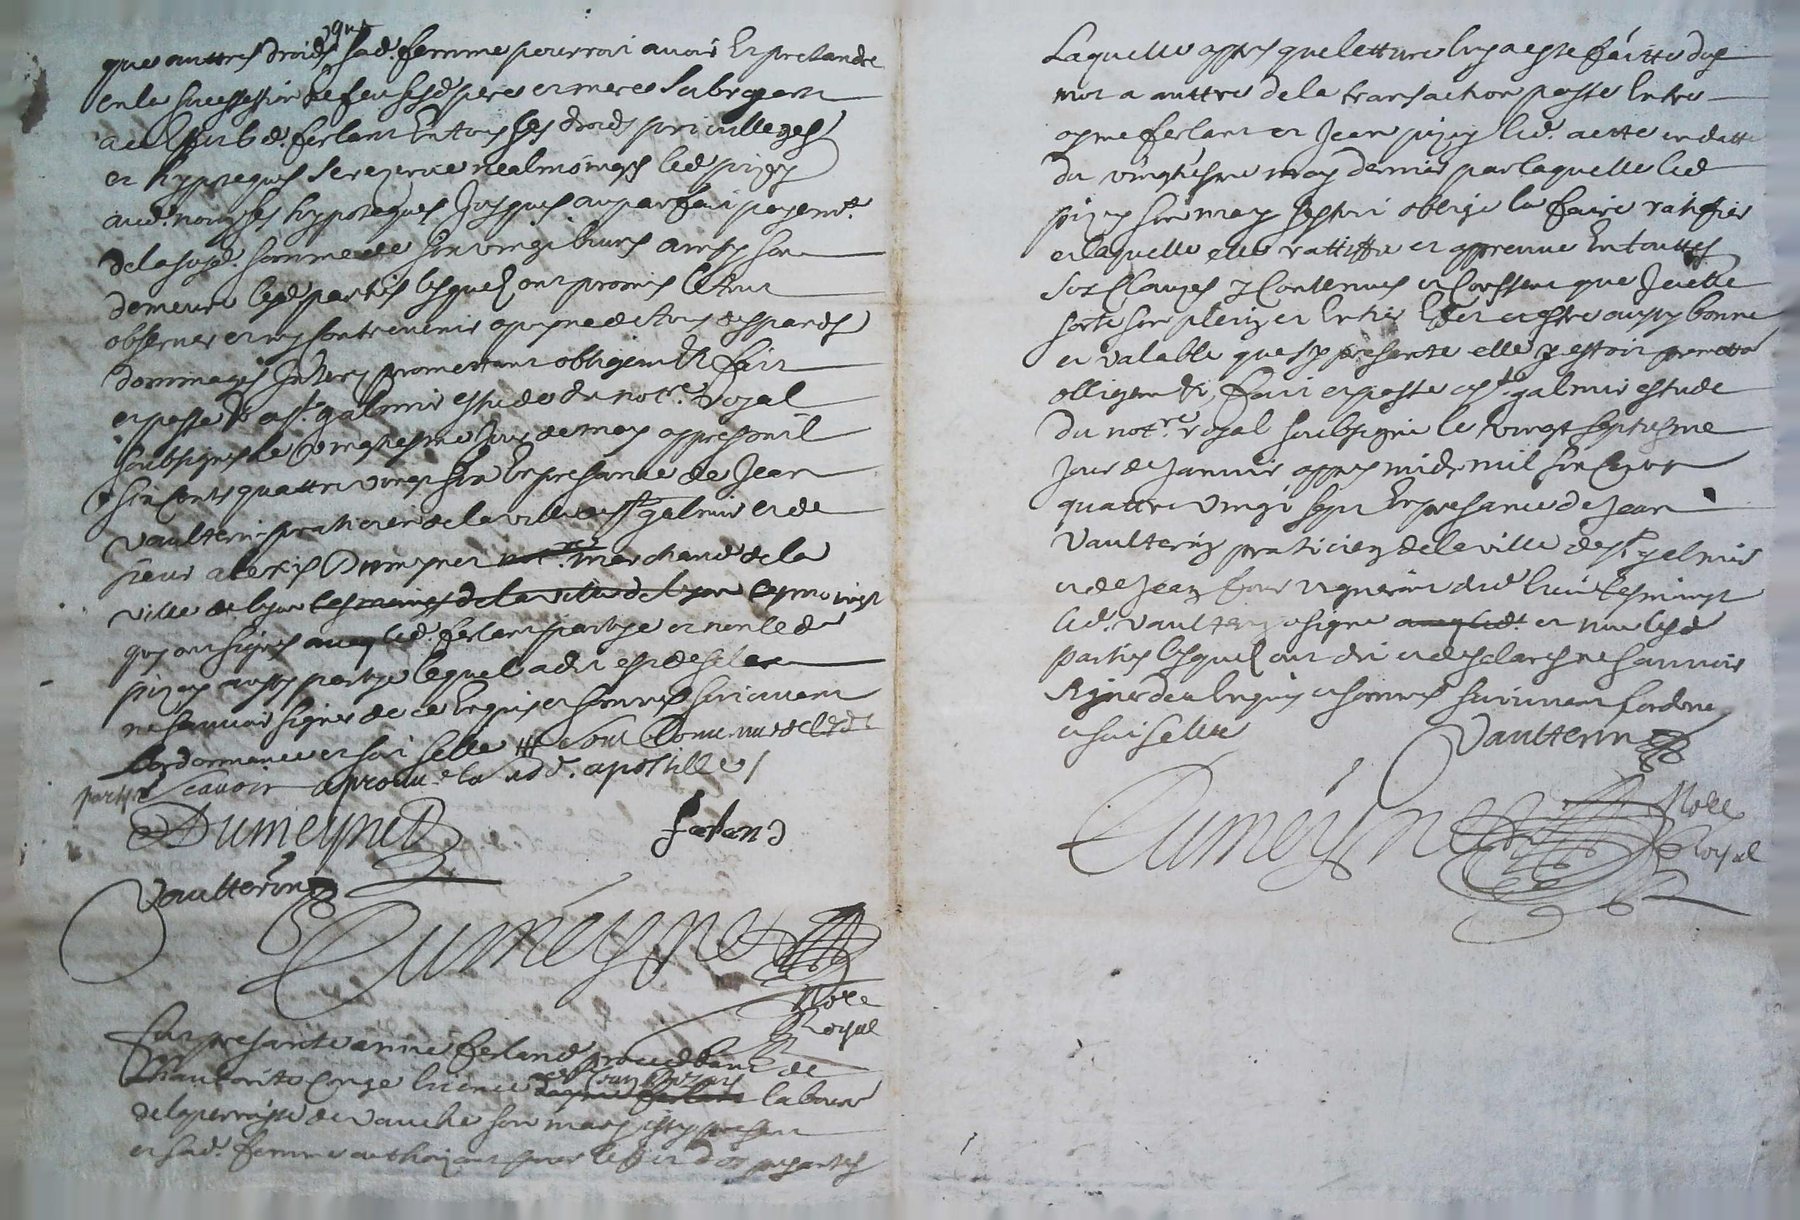 que auttres droicts que sad. femme pourroit avoir et pretandre
en la succession de feu sesd. pere et mere subrogeant
led. ferlant en tous ses droicts privilleges
et hyppoteques se rezerve nealmoings led. pizey
ses hypoteques jusques au parfait payemt.
de la susd. somme de six vingt livres ainsy sont
demeuré lesd. parties lesquels ont promis le tout
observer et ny contrevenir a peyne de tous despands
dommages interez promettant obligeant &c fait
et passé a st. galmier estude du notre. royal
soubsigné le vingtiesme jour de may appres midi mil
six cents quattre vingt six en presance de Jean
Vaulterin praticien de la ville de st. galmier et de
sieur alexis Dumeynet marchand de la
ville de lyon tesmoings
qui ont signés avec led. ferlant partye et non led.
pizey aussy partye lequel a dit et desclare
ne sauvoir signer de ce enquis et sommés suivant
lordonnance et soit sellé
partye scavoir aprouvé la susd. apostille /
Dumeynet
ferland
Vaultterin
Dumeynet
Notre
Royal
Fut presante anne ferland procedant de
lhauthorité congé licence de Jean pizey laboureur
de la parroisse de vauche son mary issy present
et sad. femme authorizant pour leffet des presantes
Laquelle appres que letture luy a esté faitte de
mot a auttre de la transaction passé entre
ayme ferlant et Jean pizey led. acte en datte
du vingtiesme may dernier par laquelle led.
pizey son mary sestoit obligé la faire ratiffier
et laquelle elle rattiffie et appreuve en touttes
ses clauzes y contenues et consent que icelle
sorte son plein et entier effet et estre aussy bonne
et vallable que sy presante elle y estoit promettant
obligeant &c fait et passé a st. galmier estude
du notre. royal soubsigné le vingt septiesme
jour de janvier appres midy mil six cent
quattre vingt sept en presance de Jean
Vaulterin praticien de la ville de st. galmier
et de Jean vigneron dud. lieu tesmoings
led. Vaulterin a signé et non lesd.
parties lesquels ont dit et desclarés ne sauvoir
signer de ce enquis et sommés suivant lordonnance
et soit sellé
Vaultterin
Dumeynet
Notre
Royal